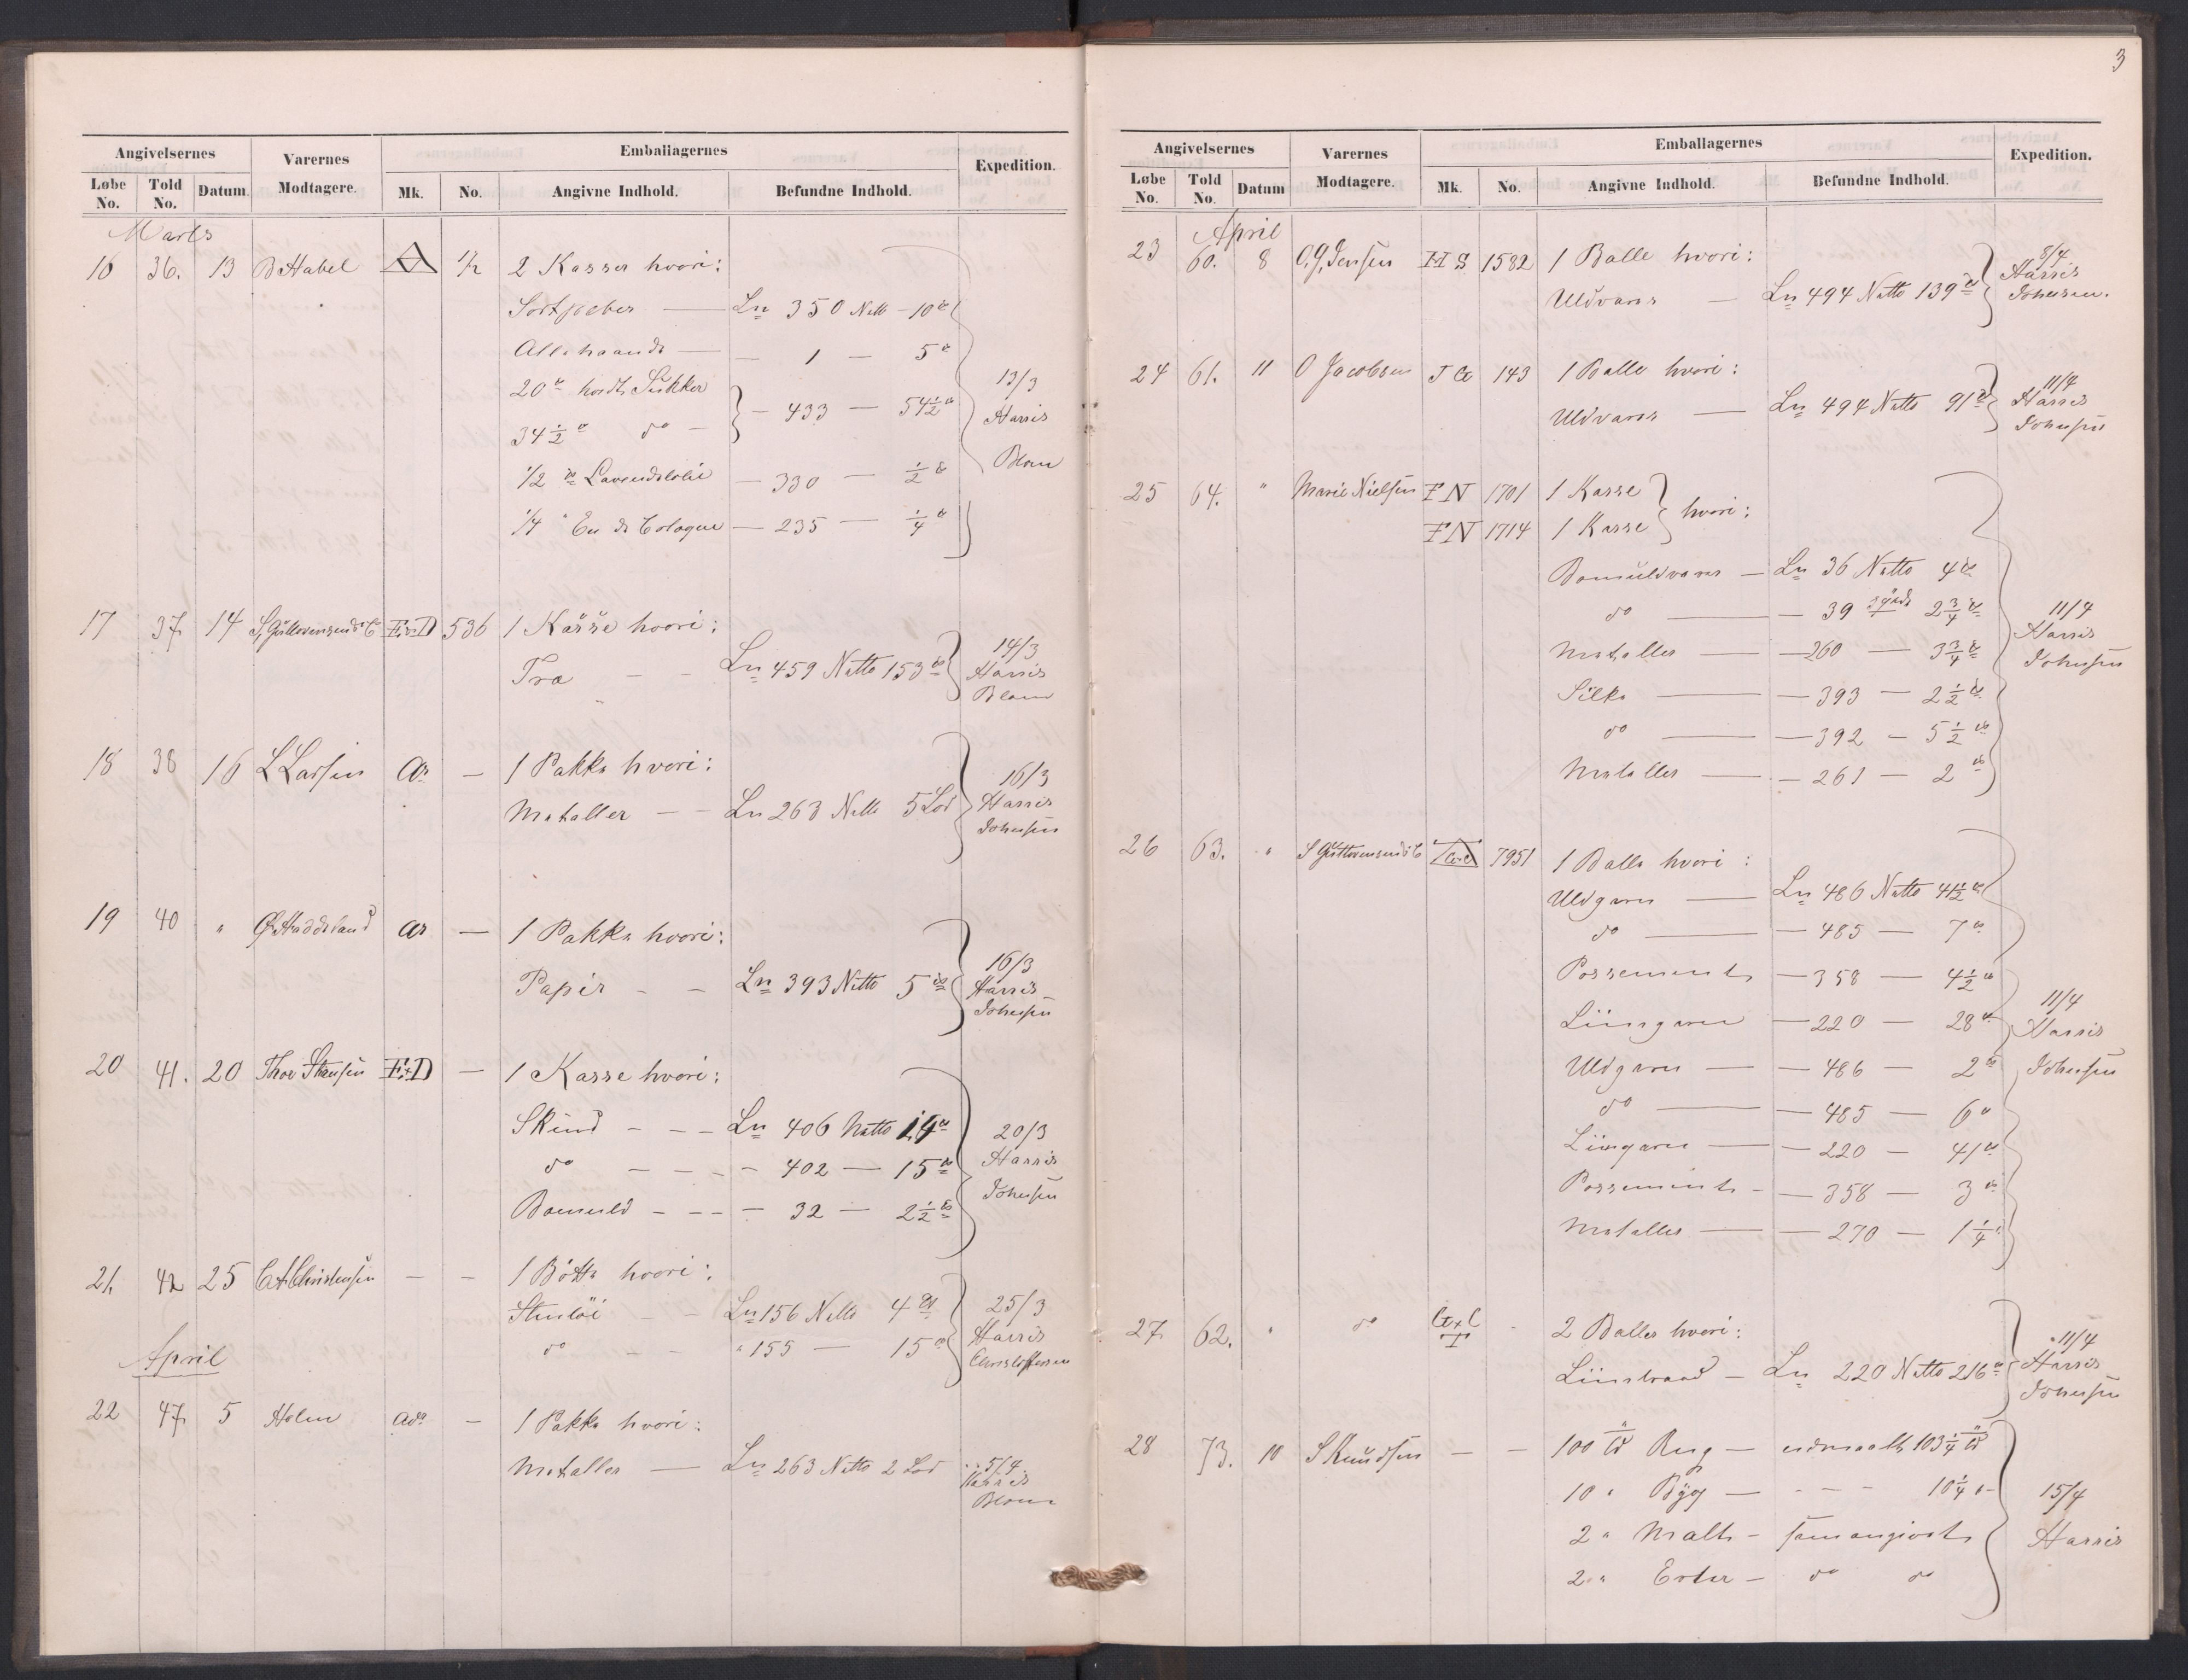 Angivelsernes Varernes Modtagere. Emballagernes Expedition.
Løbe No. Told No. Datum Mk. No. Angivne Indhold. Befundne Indhold.
Marts
16 36. 13 B Habel 1/2 2 Kasser hvori:
Sortpeber — Ln 350 Netto - 10 ℔
Allehaande — — 1 — 5 ℔
20 ℔ hvidt Sukker
34 1/2 ℔ do — — 433 — 54 1/2 ℔ 13/3 Harris
1/2 ℔ Lavendelolie — 330 — 1/2 ℔ Blom
1/4 " Eu de Cologne — 235 — 1/4 ℔
17 37. 14 536 1 Kasse hvori:
Træ — — Ln 459 Netto 153 ℔ 14/3 Harris Blom
18 38 16 L Larsen Ar — 1 Pakke hvori:
Metaller — — Ln 263 Netto 5 Lod 16/3 Harris Johnsen
19 40 " Ar — 1 Pakke hvori:
Papir - - Ln 393 Netto 5 ℔ 16/3 Harris Johnsen
20 41. 20 Thor Stensen E+D — 1 Kasse hvori:
Skind - - - Ln 406 Netto 14 ℔ 20/3 Harris Johnsen
do - - - - 402 — 15 ℔
Bomuld - - - - 32 — 2 1/2 ℔
21. 42 25 C A Christensen — - 1 Bøtte hvori:
Stentöi - - Ln 156 Netto 4 ℔ 25/3 Harris Christoffersen
do - - " 155 — 15 ℔
April
22 47. 5 Holm adr — 1 Pakke hvori:
Metaller — Ln 263 Netto 2 Lod 5/4. Harris Blom
3
Angivelsernes Varernes Modtagere. Emballagernes Expedition.
Løbe No. Told No. Datum Mk. No. Angivne Indhold. Befundne Indhold.
April
23 60. 8 O. J. Jensen H S 1582 1 Balle hvori:
Uldvarer — Ln 494 Netto 139 ℔ 8/4 Harris Johnsen.
24 61. 11 O Jacobsen 143 1 Balle hvori:
Uldvarer — Ln 494 Netto 91 ℔ 11/4 Harris Johnsen
25 64. " Marie Nielsen F N 1701 1 Kasse
F N 1714 1 Kasse hvori:
Bomuldvarer — Ln 36 Netto 4 ℔
do — — 39 2 3/4 ℔ 11/4 Harris Johnsen
Metaller — — 260 — 3 3/4 ℔
Silke — — 393 — 2 1/2 ℔
do — — 392 — 5 1/2 ℔
Metaller — — 261 — 2 ℔
26 63. " 7951 1 Balle hvori:
Uldgarn — Ln 486 Netto 41 1/2 ℔
do — — 485 — 7 ℔
Possement — 358 — 4 1/2 ℔
Liingarn — 220 — 28 ℔ 11/4 Harris Johnsen
Uldgarn — — 486 — 2 ℔
do — — 485 — 6 "
Liingarn — — 220 — 41 ℔
Possement - — 358 — 3 ℔
Metaller — — 270 — 1 1/4 "
27. 62. " do 2 Baller hvori:
Liintraad — Ln 220 Netto 216 ℔ 11/4 Harris Johnsen
28 73. 10 S Knudsen — — 100 Td Rug — udmaalt 103 1/4 Td
10 " Byg — - - - 10 1/4 " 15/4
2 " Malt - som angivet Harris
2 " Erter — do do